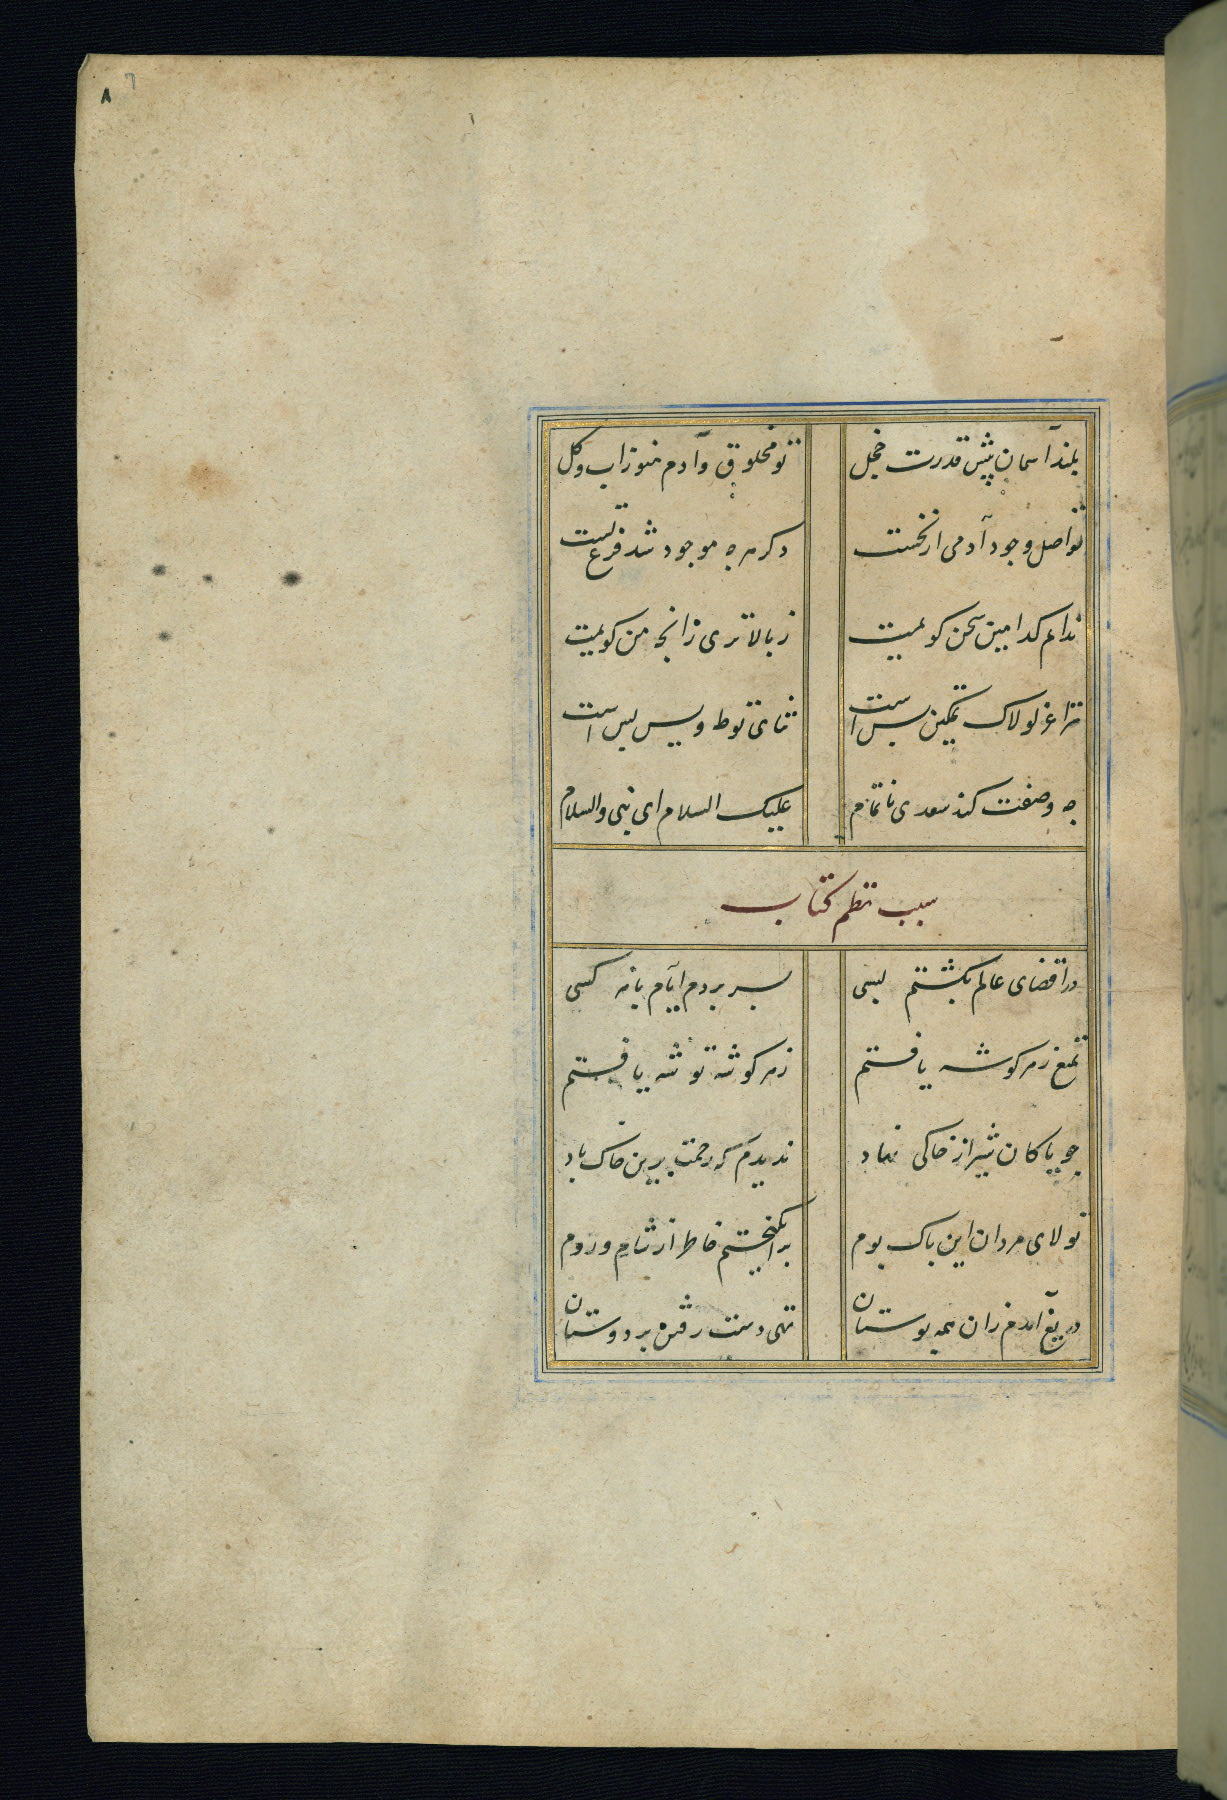 ۸
بلند آسمان پیش قدرت خجل تو مخلوق و آدم هنوز آب و کل
تو اصل وجود آدمی از نخست دکر هرچه موجود شد فرع تست
ندانم کدامین سخن کویمیت ز بالاتری زانچه من کویمیت
ترا عز لولاک تمکین بس است ثنای تو طه و یس بس است
چه وصفت کند سعدی ناتمام علیک السلام ای نبی والسلام
سبب نظم کتاب
در اقضای عالم بکشتم بسی بسر بردم ایام با نه کسی
تمتع ز هر کوشه یافتم ز هر کوشه توشه یافتم
چو پاکان شیراز خاکی نهاد ندیدم که رحمت برین خاک باد
تولای مردان این پاک بوم برانکیختم خاطر از شام و روم
دریغ آمدم زان همه بوستان تهی دست رفتن بر دوستان